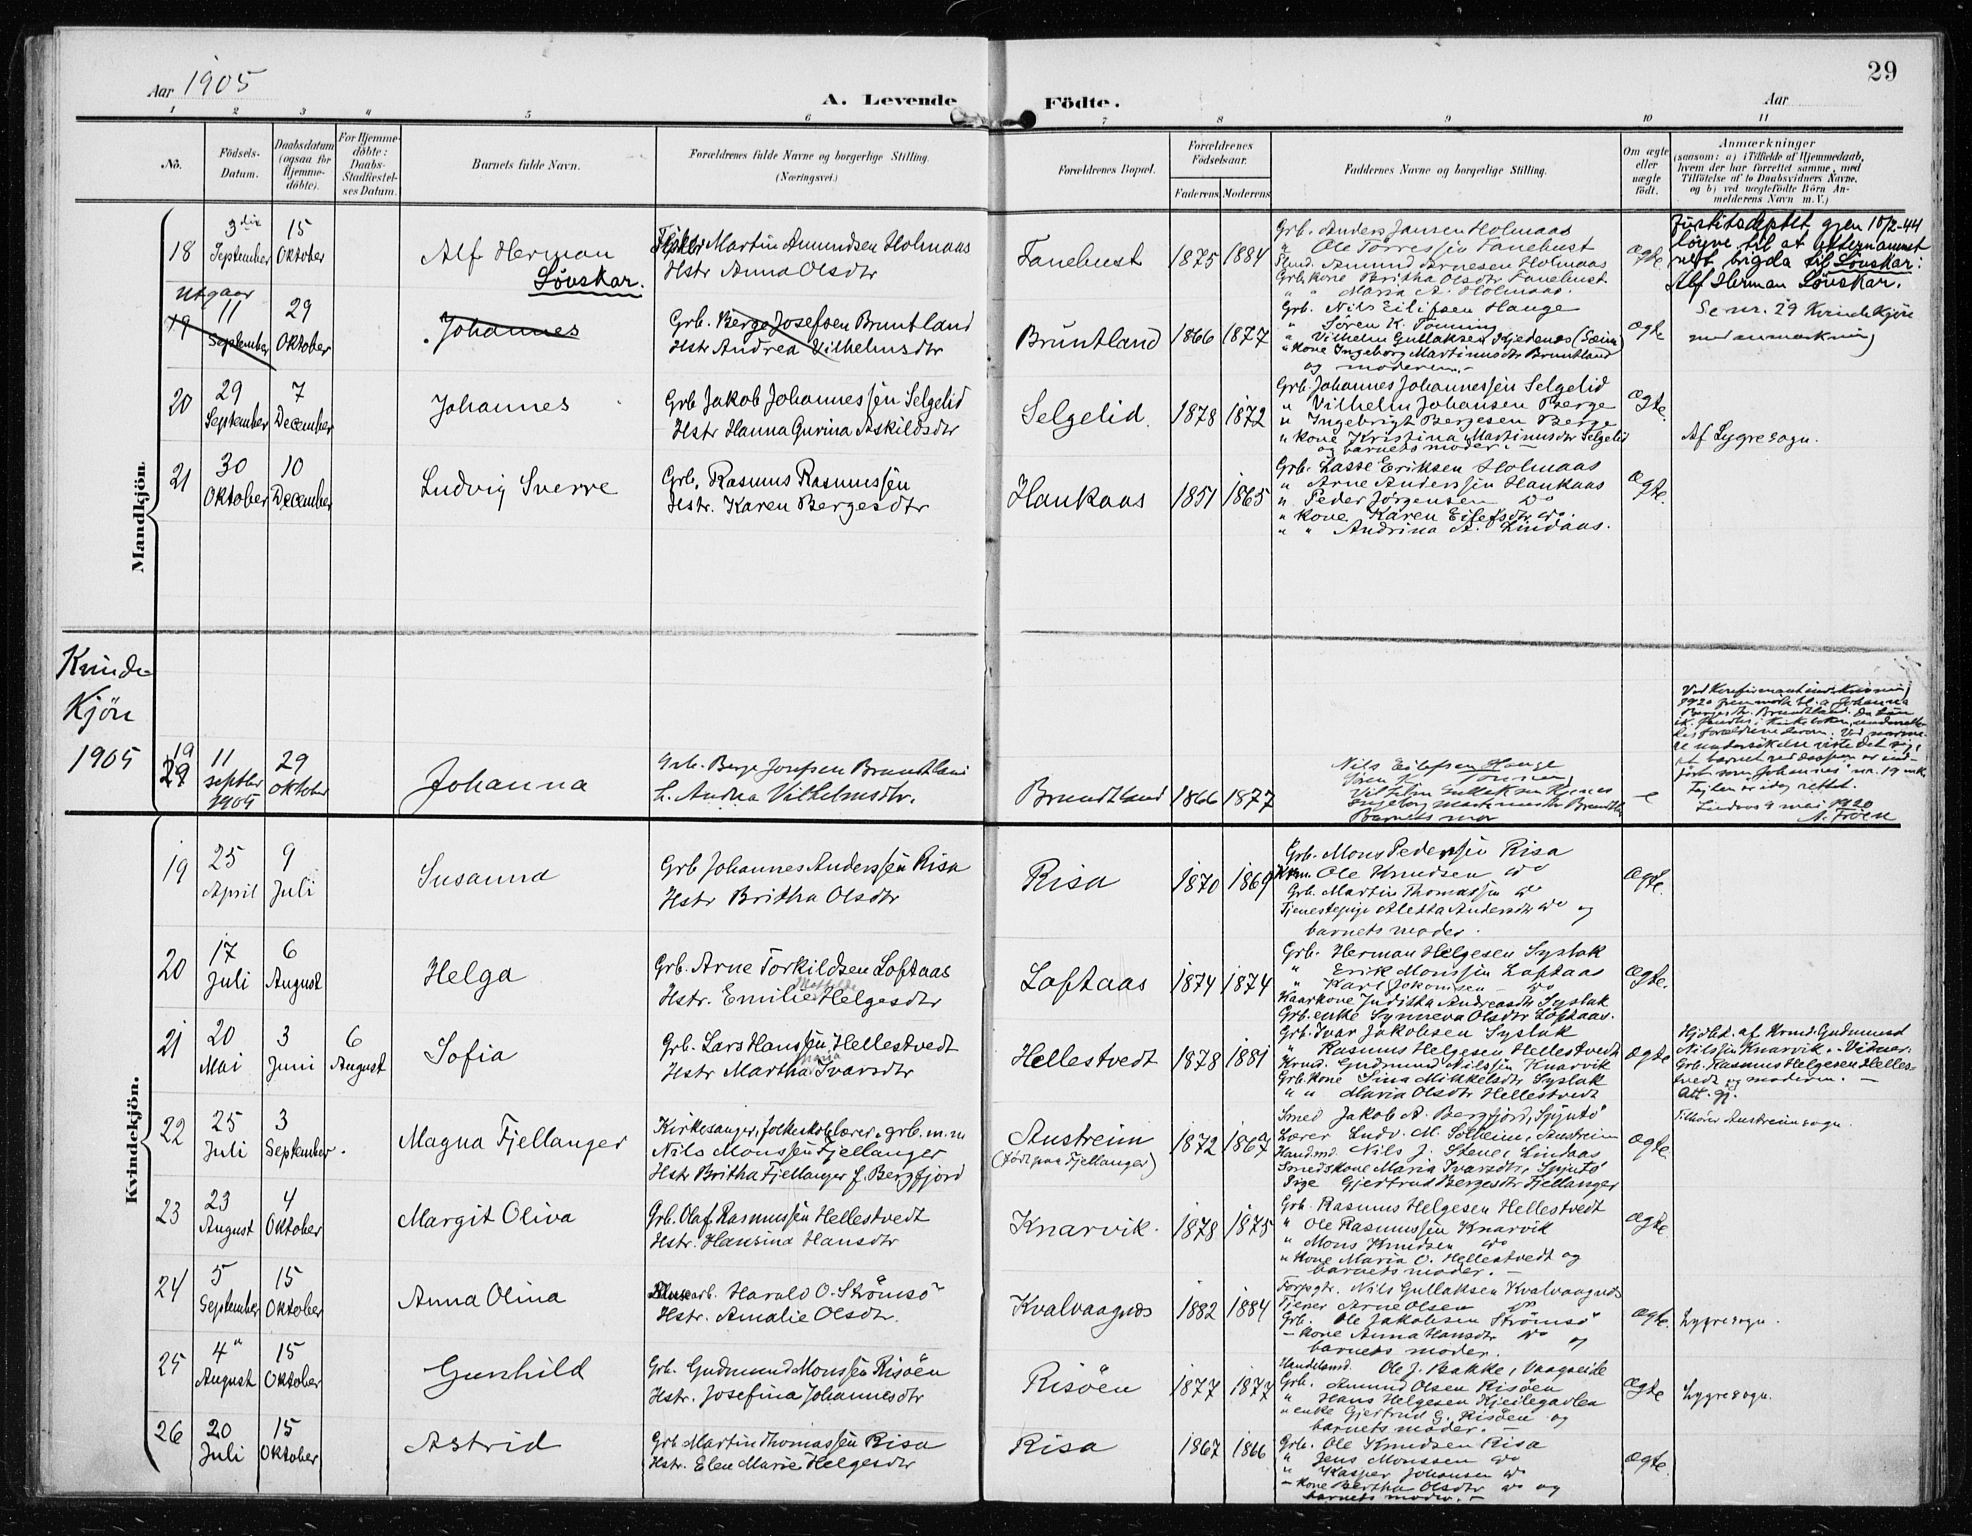 29
Aar 1905
A. Levende Födte.
Aar
1 2 3 4 5 6 7 8 9 10 11
No.
Födsels-Datum.
Daabsdatum (ogsaa for Hjemme-döbte).
For Hjemme-döbte: Daabs-Stadfæstel-ses Datum.
Barnets fulde Navn.
Forældrenes fulde Navne og borgerlige Stilling. (Næringsvei.)
Forældrenes Bopæl.
Forældrenes Födselsaar.
Faderens Moderens
Faddernes Navne og borgerlige Stilling.
Om ægte eller uægte födt.
Anmærkninger
(saasom: a) i Tilfælde af Hjemmedaab, hvem der har forrettet samme, med Tilföielse af to Daabsvidners Navne, og b) ved uægtefödte Börn An-melderens Navn m. V.)
Mandkjön.
18
3die September
15 Oktober
Alf Herman
Lövskar.
Martin Amundsen Holmaas
Hstr Anna Olsdtr
Fanebust
1875 1884
Grb. Anders Jansen Holmaas
" Ole Torressen Fanebust
Amund Arnesen Holmaas
Grb. kone Britha Olsdtr Fanebust
" " Maria A. Holmaas.
Ægte.
Justitsdeptet gjen 10/2-44
löyve til at etternamnet
vert brigda til Lövskar:
Alf Herman Lövskar.
Utgaar
19
11 September
29 Oktober
Johannes
Grb. Berge Josefsen Bruntland
Hstr Andrea Vilhelmsdtr
Bruntland
1866 1877
Grb. Nils Eilifsen Hauge
" Sören K. Tonning
" Vilhelm Gullaksen Hjedenes (Sæim)
" kone Ingeborg Martinusdtr Bruntland
og moderen. -
Ægte
Se nr. 29 Kvindekjön
med anmærkning
20
29 September
7 December
Johannes
Grb Jakob Johannessen Selgelid
Hstr Hanna Gurina Askildsdtr
Selgelid.
1878 1872
Grb. Johannes Johannessen Selgelid
" Vilhelm Johansen Berge
" Ingebrigt Bergesen Berge
" kone Kristina Martinusdtr Selgelid
og barnets moder. -
Ægte.
Af Lygre sogn.
21
30 Oktober
10 December
Ludvig Sverre
Grb. Rasmus Rasmussen
Hstr. Karen Bergesdtr
Haukaas
1851 1865
Grb. Lasse Eriksen Holmaas
" Arne Anderssen Haukaas
" Peder Jörgensen do
" kone Karen Eilefsdtr do.
" " Andrina A. Lindaas.
Ægte.
Kvinde
Kjön
1905
19
29
11 septber 1905
29 oktober
Johanna
Grb. Berge Josefsen Brundtland
h. Andrea Vilhelmsdtr.
Brundtland
1866 1877
Nils Eilefsen Hauge
Sören K. Tonning
Vilhelm Gullaksen Hjenes
Ingeborg Martinusdtr Brundtl.
Barnets mor
Ved Konfirmantindskrivning
1920 fremmøtte bl. a. Johanna
Bergesd. Brundtland. Da hun
ik. fandtes i kirkeboken, underret-
tes forældrene derom. Ved nærme-
re undersökelse viste det sig,
at barnet ved daapen er ind-
fört som "Johannes" nr. 19 mk.
Feilen er idag rettet.
Lindaas 4 mai 1920
A. Fröen
Kvindekjön.
19
25 April
9 Juli
Susanna
Grb Johannes Anderssen Risa
Hstr Britha Olsdtr
Risa
1870 1869
Grb. Mons Pedersen Risa
Ole Knudsen do
Grb. Martin Thomassen do
Tjenestepige Aletta Andersdtr do og
barnets moder.
Ægte.
20
17 Juli
6 August
Helga
Grb. Arne Torkildsen Loftaas
Mathilde
Hstr. Emilie Helgesdtr
Loftaas
1874 1874
Grb. Herman Helgesen Syslak
" Erik Monssen Loftaas
" Karl Jokomsen do
Kaarkone Juditha Andreasdtr Syslak
Grb. enke Synneva Olsdtr Loftaas.
Ægte.
21
20 Mai
3 Juni
6 August
Sofia
Grb. Lars Hanssen Hellestvedt
Maria
Hstr Martha Ivarsdtr
Hellestvedt
1878 1881
Grb. Ivar Jakobsen Syslak
" Rasmus Helgesen Hellestvedt
Krmd. Gudmund Nilssen Knarvik
Grb. kone Sina Mikkelsdtr Syslak
" " Maria Olsdtr Hellestvedt
Ægte
Hjdbt. af Krmd. Gudmund
Nilssen Knarvik. - Vidner:
Grb. Rasmus Helgesen Helles-
tvedt og moderen. -
Att. gj.
22
25 Juli
3 September.
Magna Fjellanger
Kirkesanger, folkeskolelærer, grb. m.m
Nils Monssen Fjellanger
Hstr Britha Fjellanger f. Bergfjord
Austreim
(födt paa Fjellanger)
1872 1867
Smed Jakob A. Bergfjord, Spjutö
Lærer Ludv. M. Solheim, Austreim
Handmd. Nils J. Stene, Lindaas
Smedskone Maria Ivarsdtr, Spjutö
Pige Gjertrud Bergesdtr Fjellanger
Ægte.
Tilhörer Austreim sogn.
23
23 August
4 Oktober
Margit Oliva
Grb. Olaf Rasmussen Hellestvedt
Hstr. Hansina Hansdtr
Knarvik.
1878 1875
Grb. Rasmus Helgesen Hellestvedt
" Ole Rasmussen Knarvik
" Mons Knudsen do
" kone Maria O. Hellestvedt og
barnets moder. -
Ægte.
24
5 September
15 Oktober
Anna Olina
Harald O. Strömsö
Hstr. Amalie Olsdtr.
Kvalvaagnæs
1882 1884
Forpgtr. Nils Gullaksen Kvalvaagnæs
Tjener Arne Olsen do
Grb. Ole Jakobsen Strömsö
- kone Anna Hansdtr do og
barnets moder.
Ægte.
Lygre sogn.
25
4 August
15 Oktober
Gunhild
Grb. Gudmund Monssen Risöen
Hstr. Josefina Johannesdtr
Risöen
1877 1877
Handelsmd. Ole J. Bakke, Vaageide
Grb. Amund Olsen Risöen
" Hans Helgesen Kjeilegavlen
" enke Gjertrud G. Risöen og
barnets moder. -
Ægte
Lygre sogn.
26
20 Juli
15 Oktober
Astrid
Grb Martin Thomassen Risa
Hstr. Elen Marie Helgesdtr
Risa
1867 1866
Grb. Ole Knudsen Risa
" Jens Monssen do
" Kasper Johansen do
- kone Bertha Olsdtr do og
barnets moder. -
Ægte.